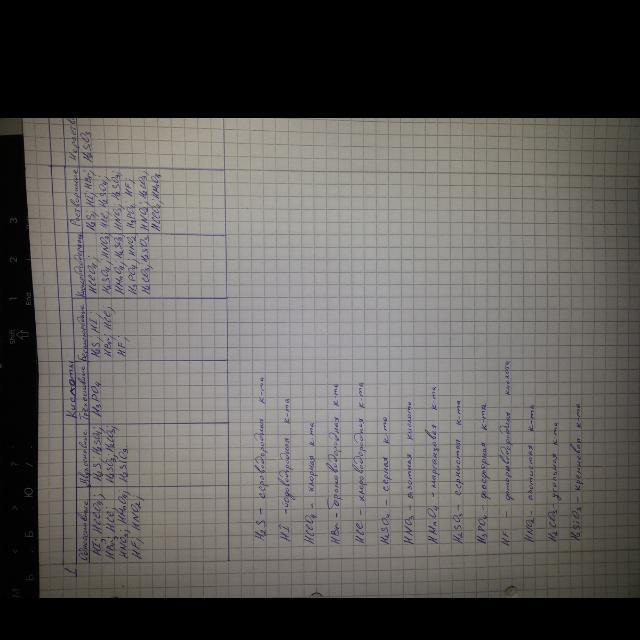 Кислоты
Одноосновные
HI, HClO4,
HBr, HCl,
HNO3, HMnO4,
HF, HNO2
Двухосновные
H2S, H2SO4,
H2SO3, H2CO3,
H2SiO3
Трехосновные
H3PO4
Бескислородные
H2S, HI,
HBr, HCl,
HF,
Кислородсодержащие
HClO4,
H2SO4, HNO3,
HMnO4, H2SO3,
H3PO4, HNO2
H2CO3, H2SiO3
Растворимые
H2S, HI, HBr,
HClO4, HCl, H2SO4,
HNO3, H2SO3
H3PO4, HF,
HNO2, H2CO3,
HMnO4
H2SiO3
H2S - сероводородная к-та
HI - йодоводородная к-та
HClO4 - хлорная к-та
HBr - бромоводородная к-та
HCl - хлороводородная к-та
H2SO4 - серная к-та
HNO3 - азотная кислота
HMnO4 - марганцовая к-та
H2SO3 - сернистая к-та
H3PO4 - фосфорная к-та
HF - фтороводородная кислота
HNO2 - азотистая к-та
H2CO3 - угольная к-та
H2SiO3 - кремниевая к-та